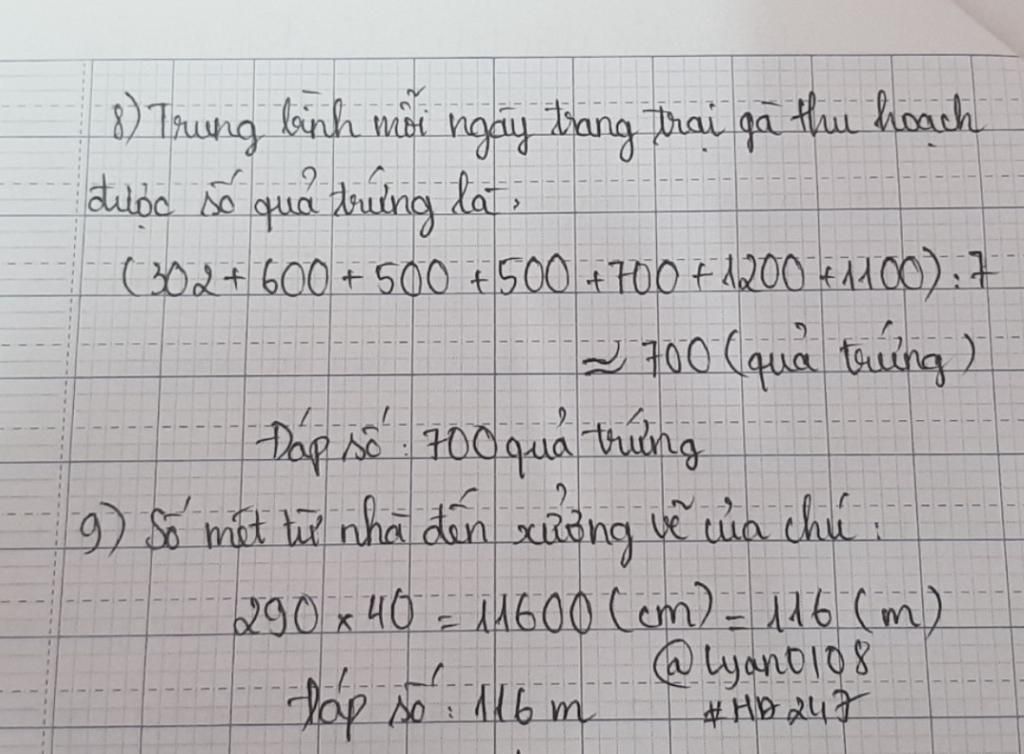 8) Trung bình mỗi ngày trang trại gà thu hoạch
được số quả trứng là:
(302 + 600 + 500 + 500 + 700 + 1200 + 1100) : 7
≈ 700 (quả trứng)
Đáp số : 700 quả trứng
9) Số mét từ nhà đến xưởng vẽ của chú :
290 x 40 = 11600 (cm) = 116 (m)
@Lyan0108
Đáp số : 116 m #HD247